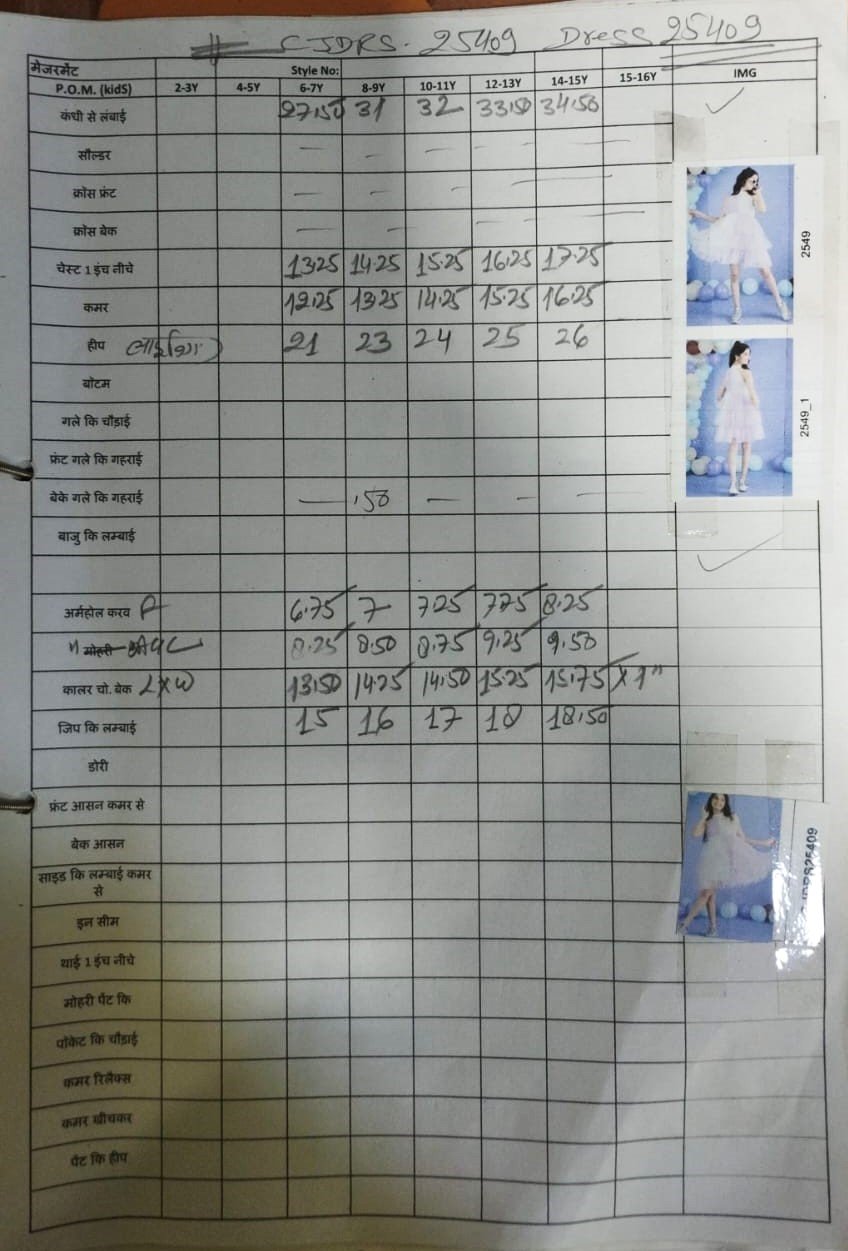 CJDRS-25409 Dress 25409
मेजरमेंट Style No:
P.O.M. (kidS) 2-3Y 4-5Y 6-7Y 8-9Y 10-11Y 12-13Y 14-15Y 15-16Y IMG
कंधी से लंबाई 27.50 31 32 33.50 34.50
सौल्डर — — — — —
क्रोस फ्रंट — — — — —
क्रोस बेक — — — — —
चेस्ट 1 इंच नीचे 13.25 14.25 15.25 16.25 17.25
कमर 12.25 13.25 14.25 15.25 16.25
हीप 21 23 24 25 26
बोटम
गले कि चौड़ाई
फ्रंट गले कि गहराई
बेके गले कि गहराई — .50 — — —
बाजु कि लम्बाई
अर्महोल करव 6.75 7 7.25 7.75 8.25
मोहरी 8.25 8.50 8.75 9.25 9.50
कालर चो. बेक L×W 13.50 14.25 14.50 15.25 15.75 × 1"
जिप कि लम्बाई 15 16 17 18 18.50
डोरी
फ्रंट आसन कमर से
बेक आसन
साइड कि लम्बाई कमर
से
इन सीम
थाई 1 इंच नीचे
मोहरी पेंट कि
पॉकेट कि चौड़ाई
कमर रिलैक्स
कमर खीचकर
पेंट कि हीप
2549
2549_1